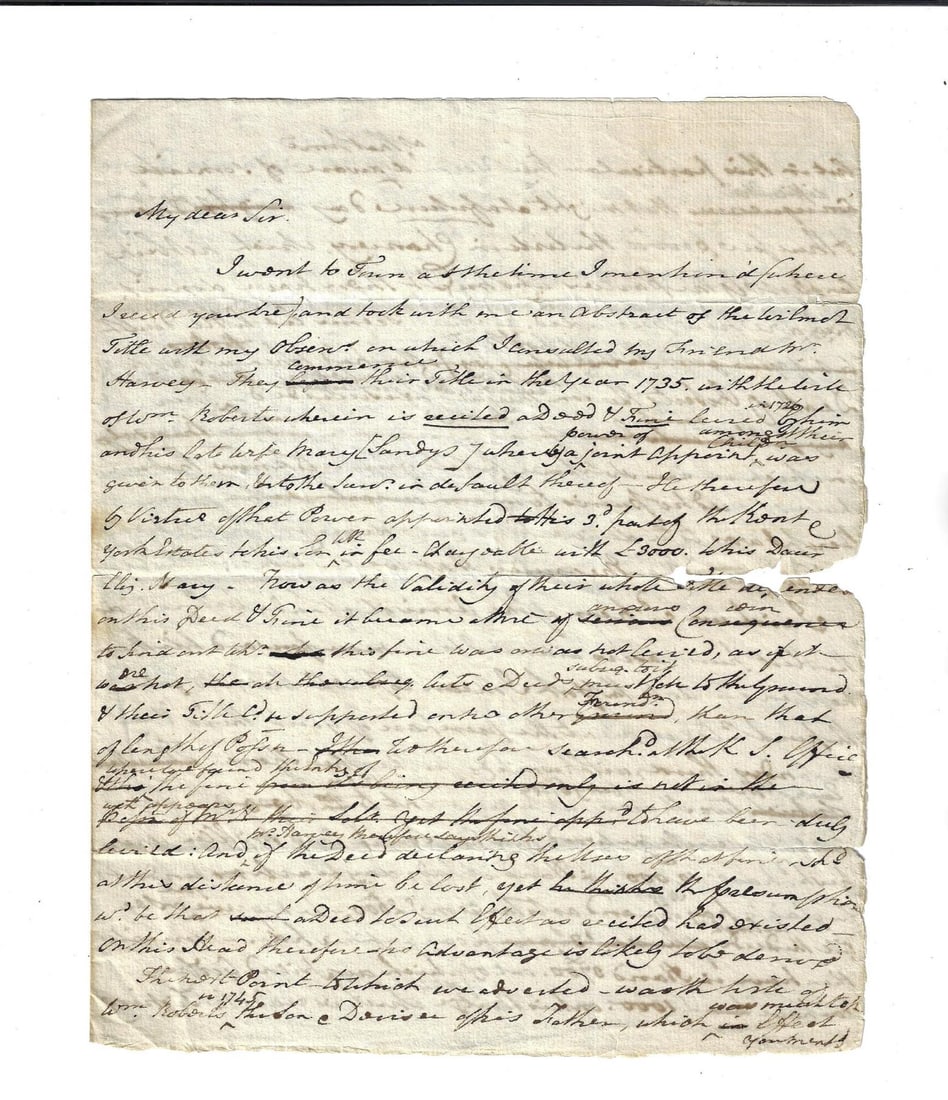 My dear Sir.
I went to Town at the time I mention'd (where
I reced your Lre) and took with me an Abstract of the Wilmot
Title with my Observs on which I consulted my Friend Mr.
commence
Harvey - They their Title in the Year 1735. with the Will
in 1726
of Wm. Roberts wherein is recited a Deed & Fine levied by him
power of amongst their
and his late Wife Mary [Sandys] whereby a joint Appointmt was
given to them, & to the Survr. in default thereof - He therefore
by Virtue of that Power appointed his 3d. part of the Kent &
York Estates to his Son Wm in fee - Chargeable with £3000. to his Daur
Eliz. Mary - Now as the Validity of their whole Title depended
on this Deed & Fine it became a Mre of Consequence
to find out whr. this fine was or was not levied, as if it
were not, the subseq. Acts & Deeds must fall to the Ground
& their Title be supported on no other , than that
of length of Posson - We therefore search'd at the K S. Office
where we found the
the fine
wch appears to have been duly
Mr. Harvey therefore says thinks
levied: And if the Deed declaring the Uses of that fine shd
at this distance of time be lost, yet the presumption
wd. be that a Deed to such Effect as recited had existed -
On this Head therefore no Advantage is likely to be derived
The next Point to which we adverted was the Will of
in 1745 was much to
Wm. Roberts the Son & Devisee of his Father, which Effect